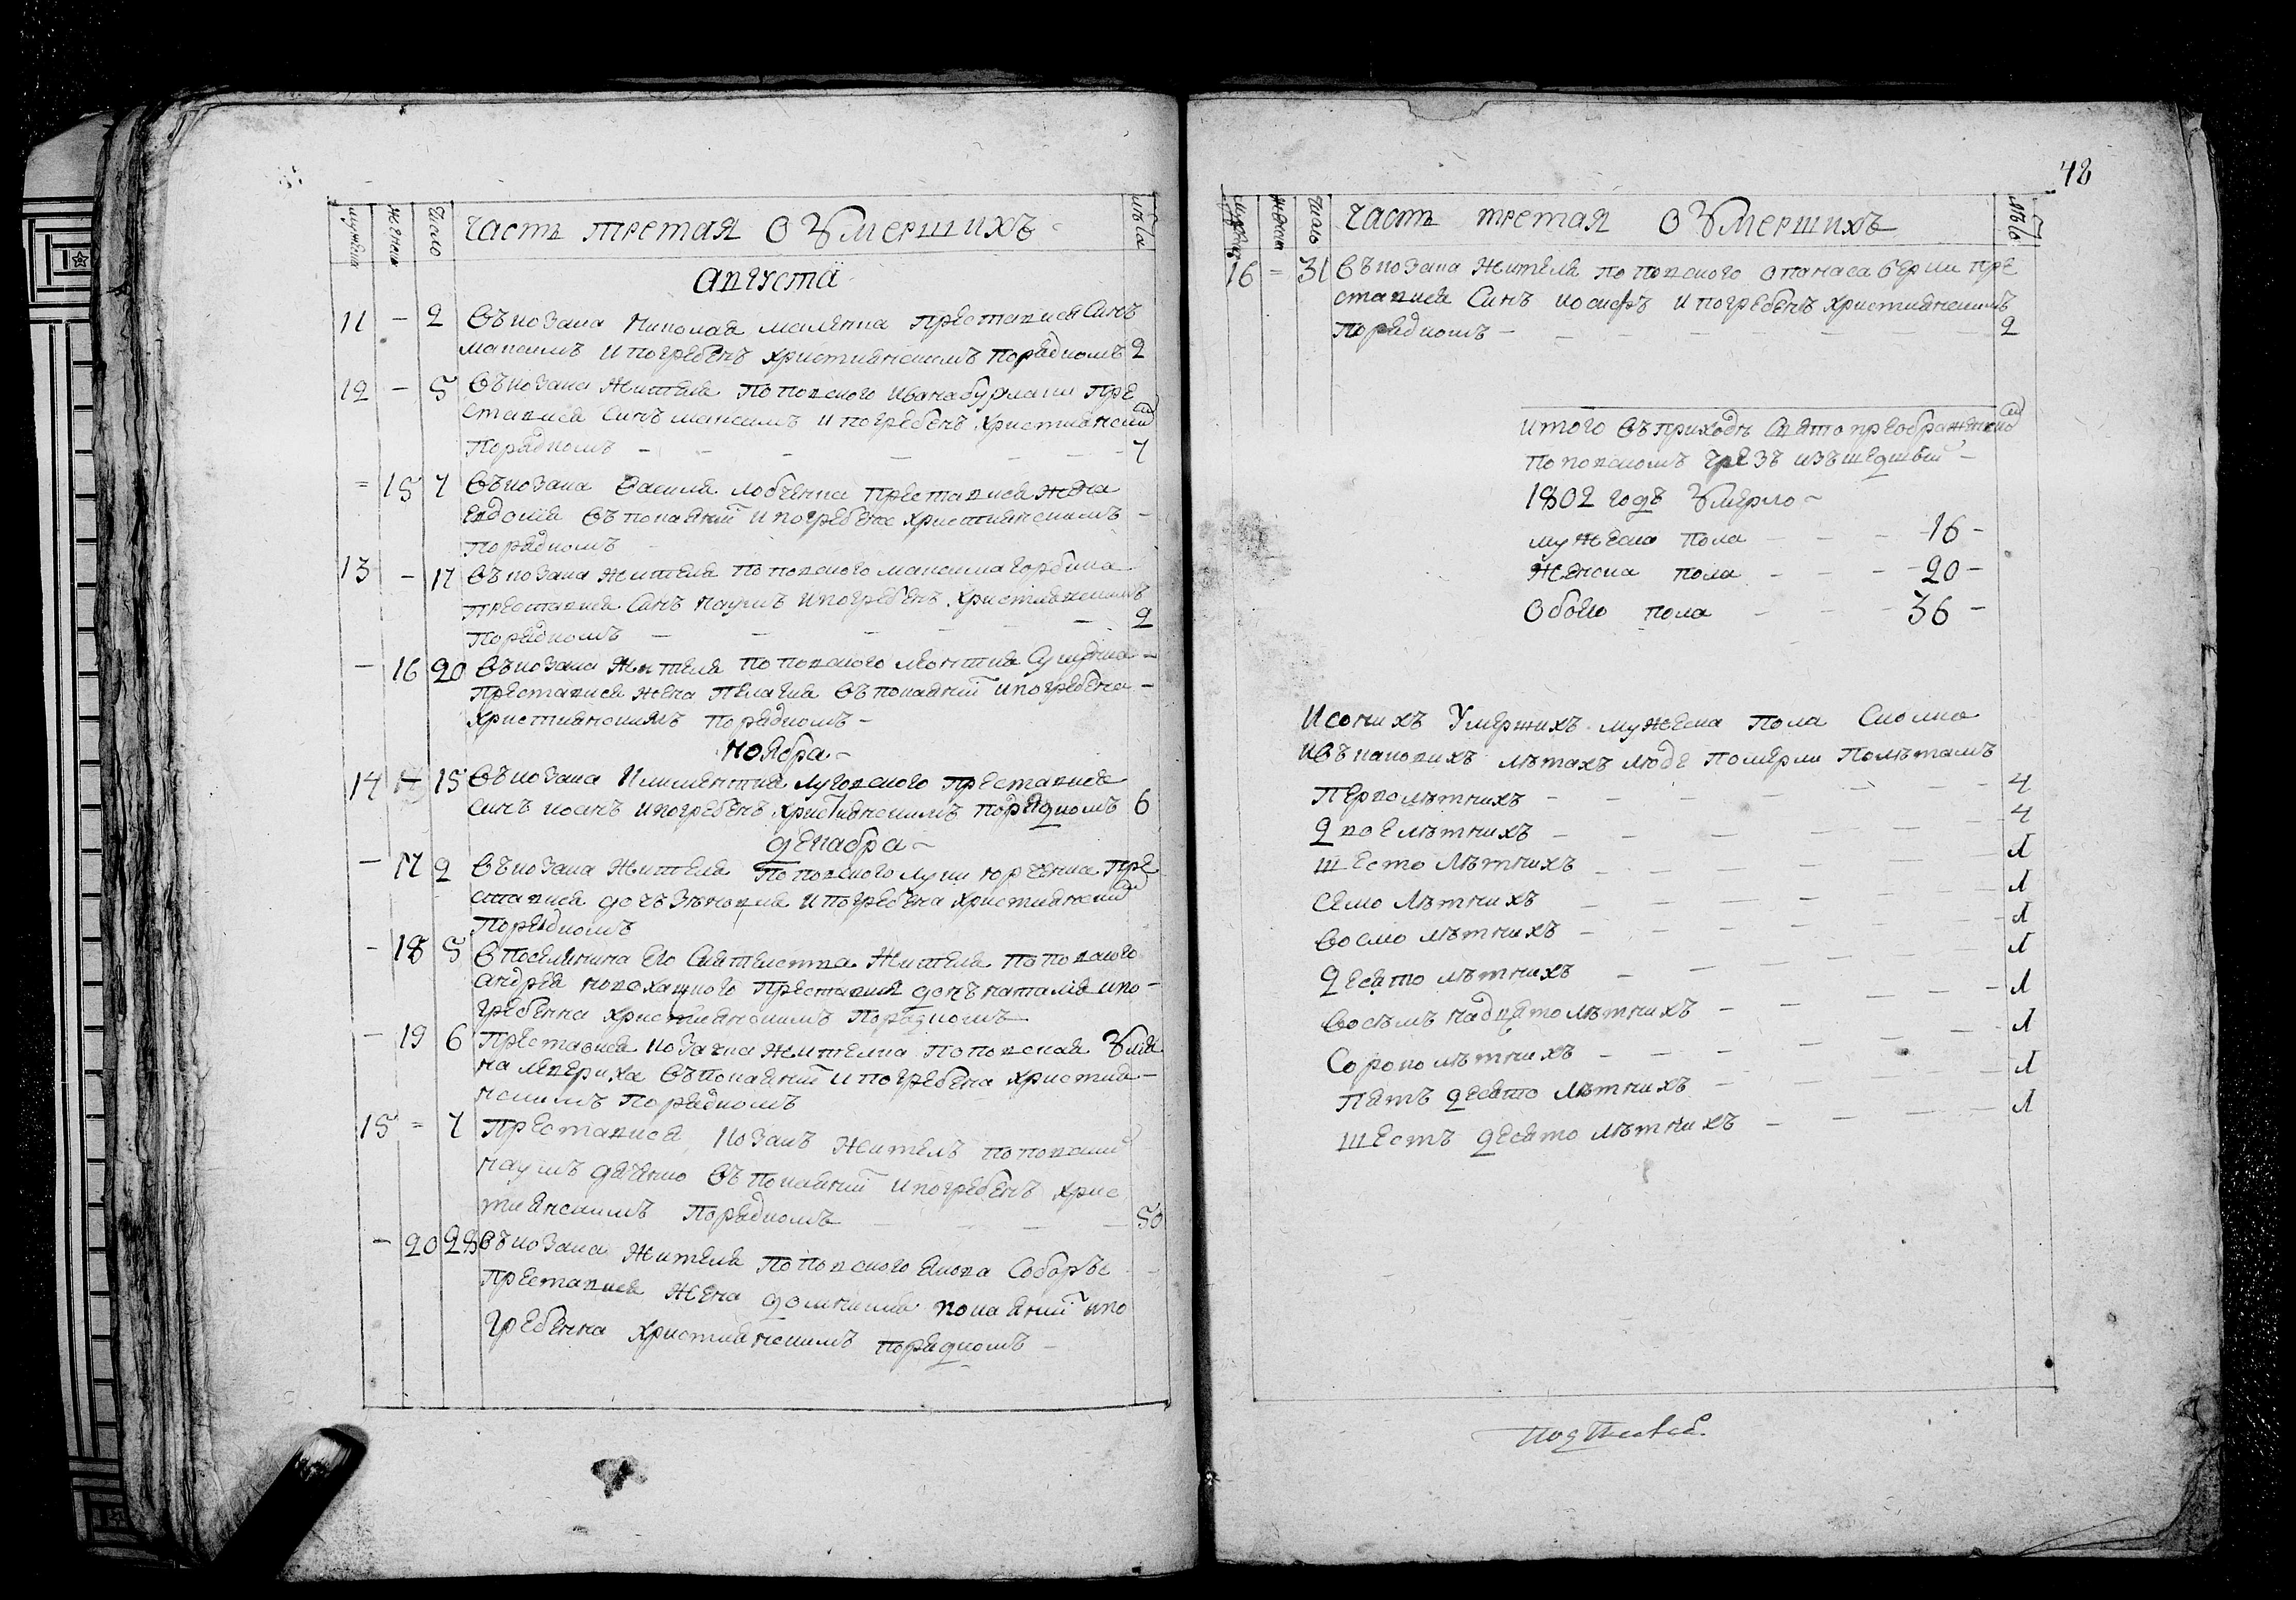 мужеска женска Число Часть третая О Умершихъ Лѣта
Августа
11 – 2 Въ козака Николая малѣнка Преставися Синъ
максимъ И погребенъ християнскимъ Порядкомъ 2
12 – 5 Въ козака Жителя Поповского Ивана бурлаки Пре
ставися Синъ максимъ И погребенъ Християнским
Порядкомъ – – – – – – 7
= 15 7 Въ козака Василя лобченка Преставися Жена
Евдокія Въ покаянїи И погребена християнскимъ –
Порядкомъ
13 – 17 Въ козака Жителя Поповского максима горбика
Преставися Синъ Наумъ И погребенъ Християнскимъ
Порядкомъ – – – – – 2
– 16 20 Въ козака Жителя Поповского леонтия
Преставися Жена Пелагия Въ покаянїи И погребена –
Християнскимъ Порядкомъ –
Ноября –
14 15 Въ козака Климентия луговского Преставися
Синъ иоанъ И погребенъ Християнскимъ Порядкомъ 6
Декабра –
– 17 2 Въ козака Жителя Поповского луки юрченка Пре
ставися дочъ Зѣновия И погребена Християнским
Порядкомъ
– 18 5 В Поселянина Его Жителя Поповского
Андрея Преставися дочъ наталія и по –
гребенна християнскимъ Порядкомъ
– 19 6 Преставися козачка Жителка Поповская Улия
на Въ покаянїи И погребена Христия –
нскимъ Порядкомъ
15 = 7 Преставися, козакъ Житель Поповский
Наумъ дяченко Въ Покаянїи И погребенъ Хрис
тиянскимъ Порядкомъ – – – 50
– 20 Въ козака Жителя Поповского Якова
Преставися Жена домникия покаянїи и по
гребенна Християнскимъ порядкомъ –
48
мужеска женска Число Часть третая О Умершихъ Лѣта
16 = 31 Въ козака Жителя Поповского Опанаса Пре
ставися Синъ иосифъ И погребенъ Християнскимъ
Порядкомъ – – – 2
Итого Въ приходѣ Свято преображенском
Поповскомъ Чрезъ изъшедшїй –
1802 годъ Умерло –
мужеска пола – – – 16 –
Женска пола – – – 20 –
Обоего пола – – – 36 –
И сонихъ Умершихъ мужеска Пола Сколко
И въ каковихъ лѣтахъ люде Померли По лѣтамъ
Перволѣтнихъ – – – – – 4
2воелѣтнихъ – – – – – 4
Шестолѣтнихъ – – – – 1
Семолѣтнихъ – – – – 1
Восмолѣтнихъ – – – – 1
Десятолѣтнихъ – – – – 1
Восемънадцятолѣтнихъ – – – 1
Сороколѣтнихъ – – – – 1
Пятъ десятолѣтнихъ – – – 1
Шестъ десятолѣтнихъ – – – 1